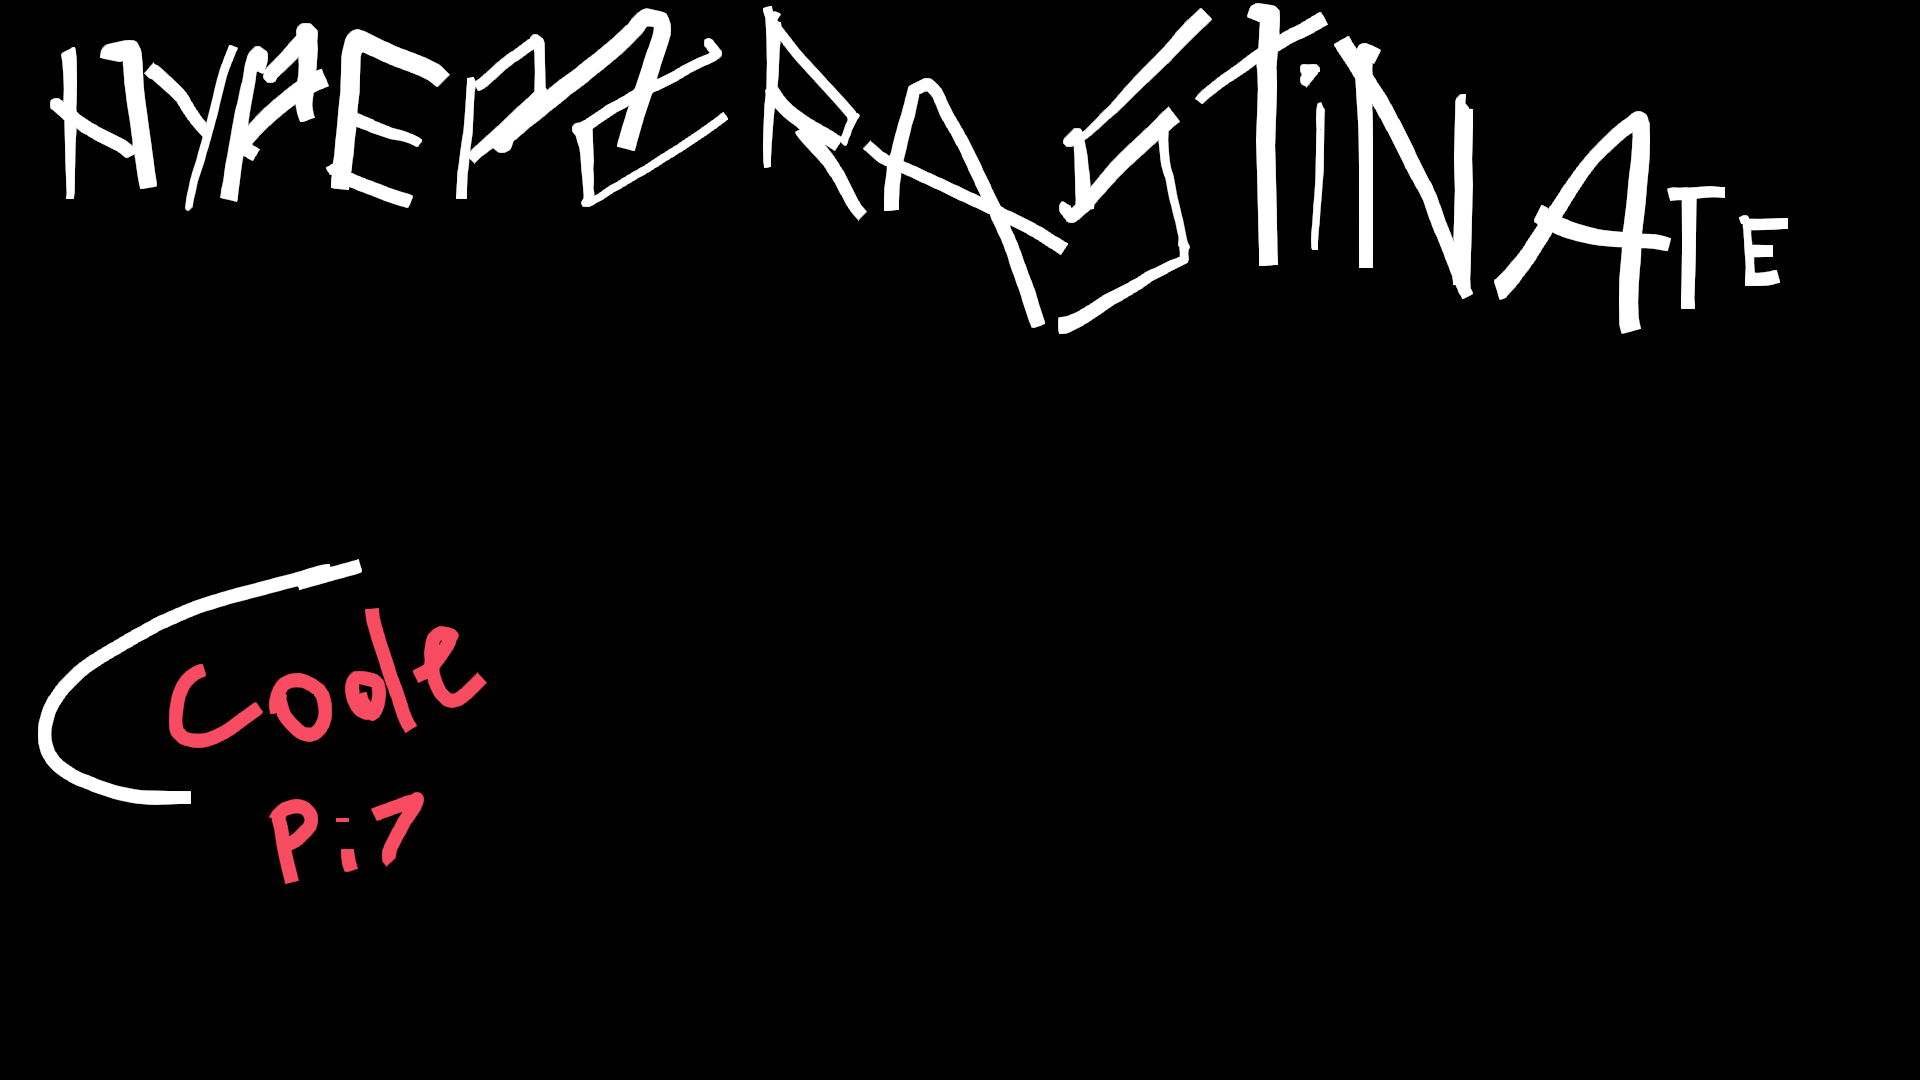 HYPERCRASTiNATE
Code
P:7